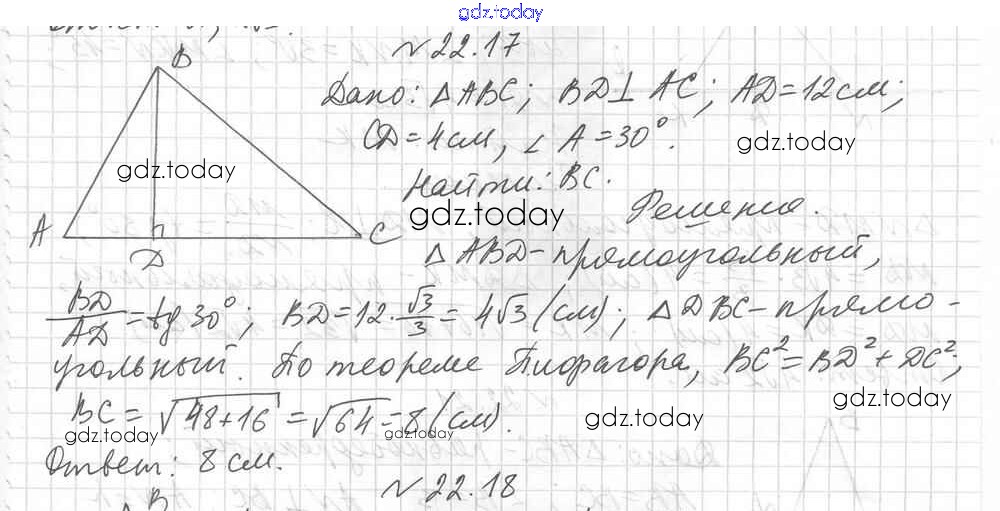 gdz.today
№ 22.17
B
Дано: △ABC; BD⊥AC; AD=12см;
CD=4см, ∠A=30°.
gdz.today
gdz.today
Найти: BC.
gdz.today
Решение.
A
D
C
△ABD-прямоугольный,
BD/AD=tg30°; BD=12·√3/3=4√3(см); △DBC-прямо-
угольный. По теореме Пифагора, BC²=BD²+DC²;
gdz.today
BC=√48+16=√64=8(см).
gdz.today
gdz.today
gdz.today
Ответ: 8см.
№ 22.18
B